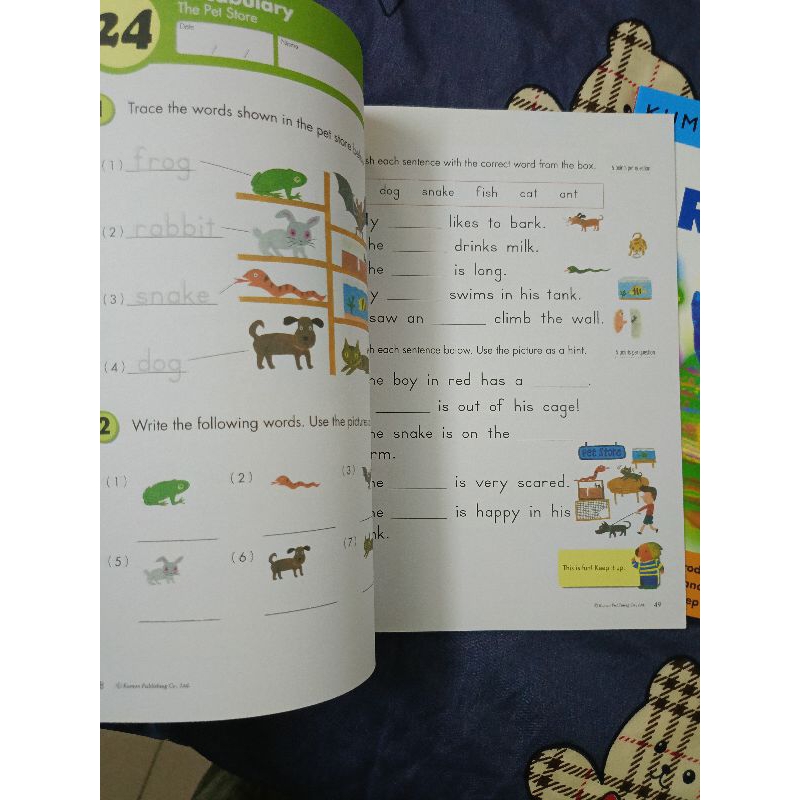 24
The Pet Store
Date
/ /
Name
1
Trace the words shown in the pet store
(1) frog
(2) rabbit
(3) snake
(4) dog
2
Write the following words. Use the picture
(1)
(2)
(3)
(5)
(6)
(7)
© Kumon Publishing Co., Ltd.
sh each sentence with the correct word from the box.
dog snake fish cat ant
y ______ likes to bark.
he ______ drinks milk.
he ______ is long.
y ______ swims in his tank.
saw an ______ climb the wall.
sh each sentence below. Use the picture as a hint.
he boy in red has a ______.
______ is out of his cage!
he snake is on the
rm.
he ______ is very scared.
he ______ is happy in his
nk.
Pet Store
This is fun! Keep it up!
© Kumon Publishing Co., Ltd. 49
KUM
R